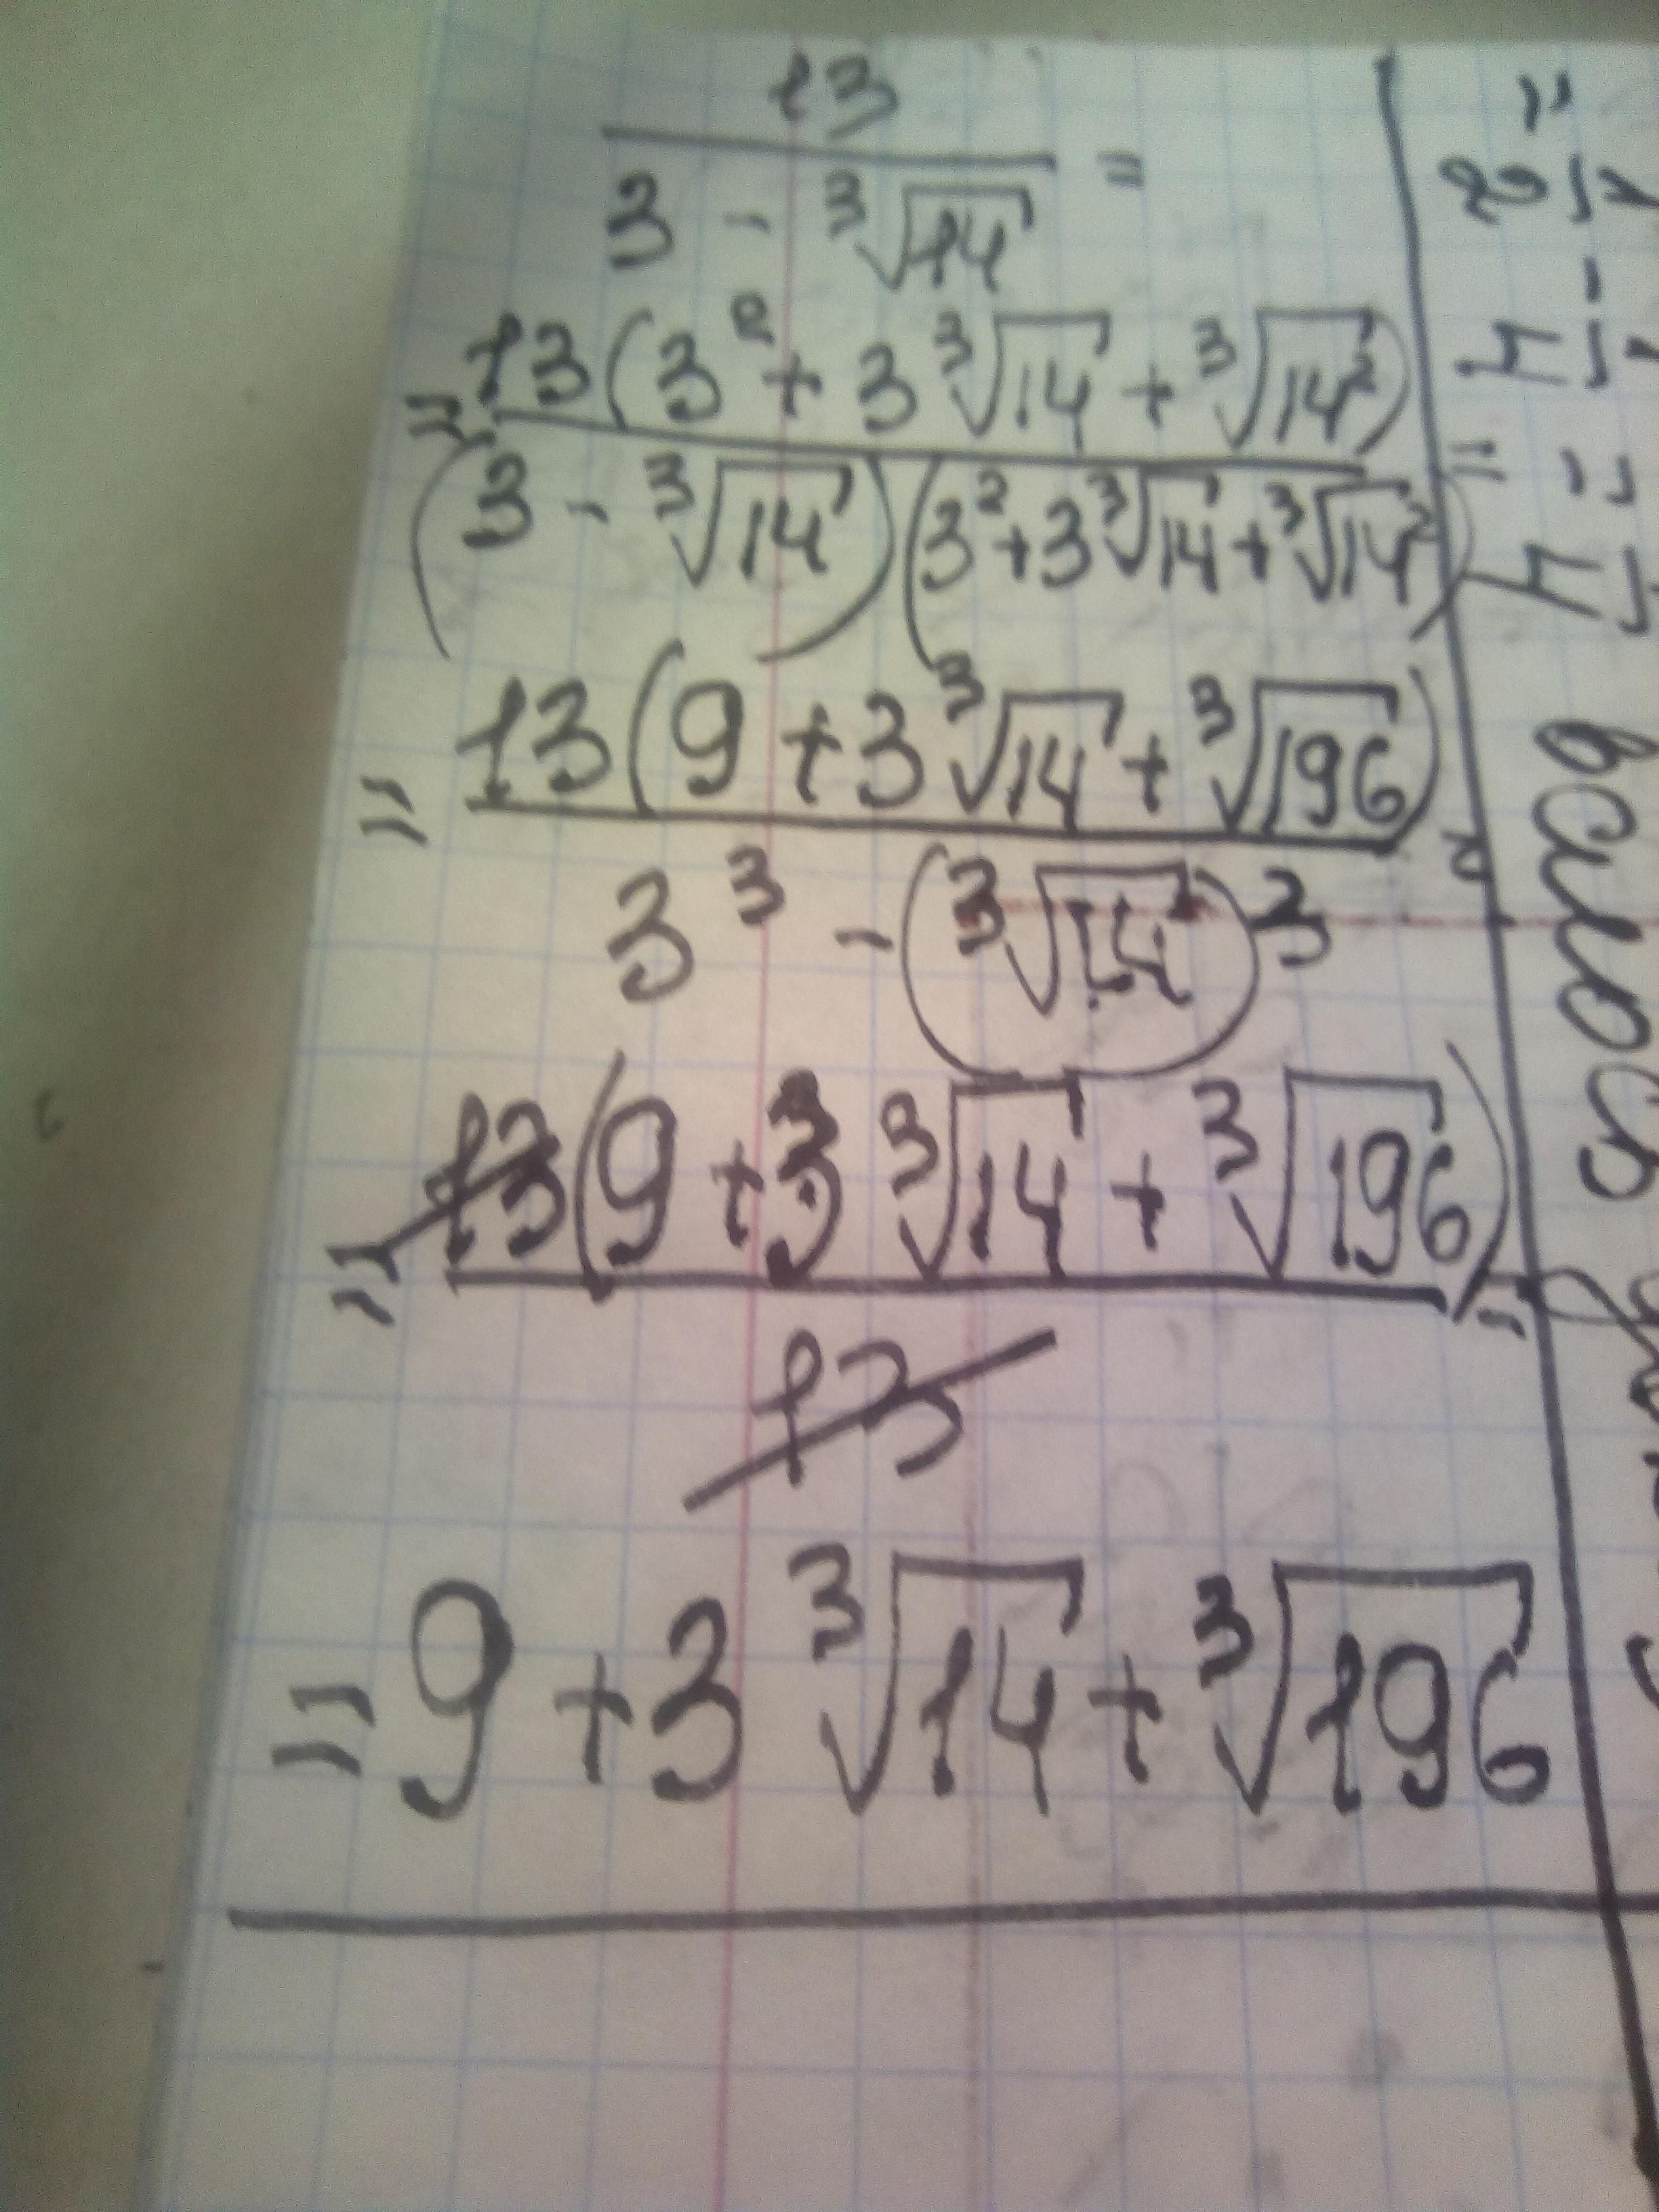 13 / (3 - ∛14) =
= 13(3² + 3∛14 + ∛14²) / (3 - ∛14)(3² + 3∛14 + ∛14²) =
= 13(9 + 3∛14 + ∛196) / 3³ - (∛14)³ =
= 13(9 + 3∛14 + ∛196) / 13 =
= 9 + 3∛14 + ∛196